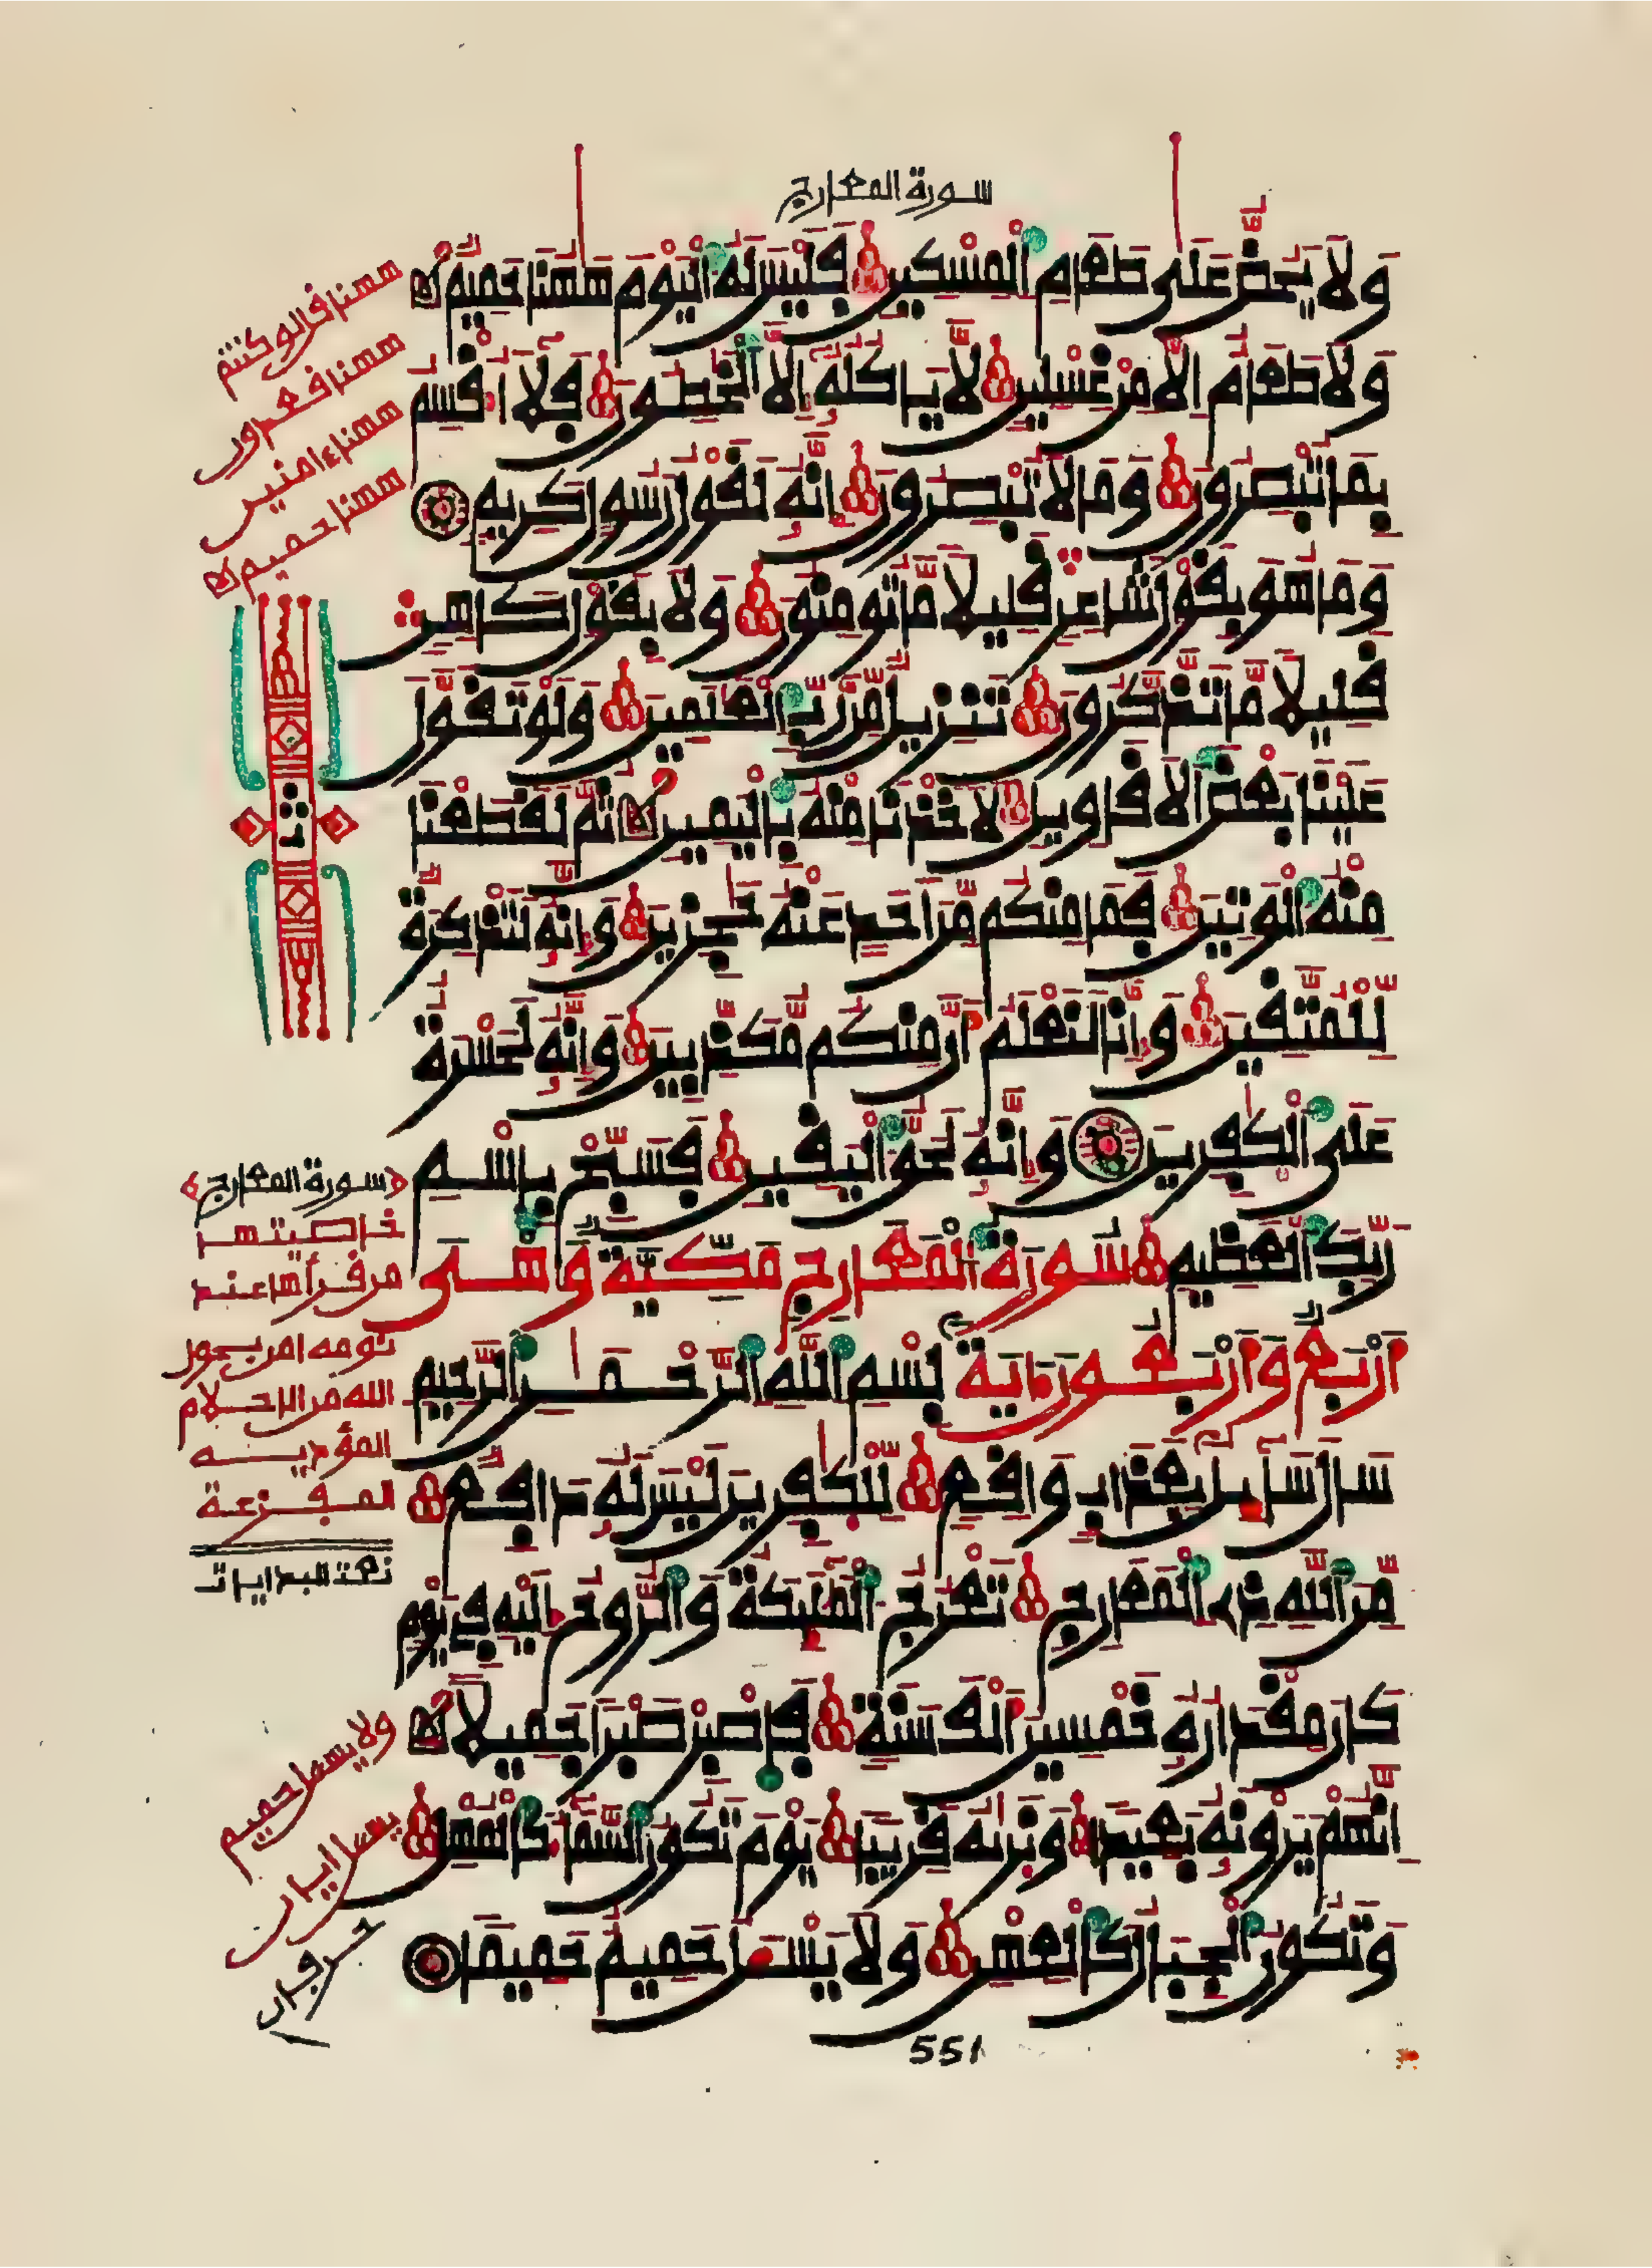 سورة المعارج
وَلَا يَحُضُّ عَلَىٰ طَعَامِ اِ۬لْمِسْكِينِ فَلَيْسَ لَهُ اُ۬لْيَوْمَ هَٰهُنَا حَمِيمٞ
وَلَا طَعَامٌ اِلَّا مِنْ غِسْلِينٖ لَّا يَاكُلُهُۥٓ إِلَّا اَ۬لْخَٰطِـُٔونَ فَلَآ أُقْسِمُ
بِمَا تُبْصِرُونَ وَمَا لَا تُبْصِرُونَ إِنَّهُۥ لَقَوْلُ رَسُولٖ كَرِيمٖ
وَمَا هُوَ بِقَوْلِ شَاعِرٖ قَلِيلٗا مَّا تُومِنُونَ وَلَا بِقَوْلِ كَاهِنٖ
قَلِيلٗا مَّا تَذَّكَّرُونَ تَنزِيلٞ مِّن رَّبِّ اِ۬لْعَٰلَمِينَ وَلَوْ تَقَوَّلَ
عَلَيْنَا بَعْضَ اَ۬لَاقَاوِيلِ لَأَخَذْنَا مِنْهُ بِالْيَمِينِ ثُمَّ لَقَطَعْنَا
مِنْهُ اُ۬لْوَتِينَ فَمَا مِنكُم مِّنَ اَحَدٍ عَنْهُ حَٰجِزِينَ وَإِنَّهُۥ لَتَذْكِرَةٞ
لِّلْمُتَّقِينَ وَإِنَّا لَنَعْلَمُ أَنَّ مِنكُم مُّكَذِّبِينَ وَإِنَّهُۥ لَحَسْرَةٌ
عَلَى اَ۬لْكَٰفِرِينَ وَإِنَّهُۥ لَحَقُّ اُ۬لْيَقِينِ فَسَبِّحْ بِاسْمِ
رَبِّكَ اَ۬لْعَظِيمِ سُورَةُ الْمَعَارِجِ مَكِّيَّةٌ وَهْىَ
أَرْبَعٌ وَأَرْبَعُونَ ءَايَةً بِسْمِ اِ۬للَّهِ اِ۬لرَّحْمَٰنِ اِ۬لرَّحِيمِ
سَالَ سَآئِلُۢ بِعَذَابٖ وَاقِعٖ لِّلْكٰفِرِينَ لَيْسَ لَهُۥ دَافِعٞ
مِّنَ اَ۬للَّهِ ذِے اِ۬لْمَعَارِجِ تَعْرُجُ اُ۬لْمَلَٰٓئِكَةُ وَالرُّوحُ إِلَيْهِ فِے يَوْمٖ
كَانَ مِقْدَارُهُۥ خَمْسِينَ أَلْفَ سَنَةٖ فَاصْبِرْ صَبْرٗا جَمِيلًا
اِنَّهُمْ يَرَوْنَهُۥ بَعِيدٗا وَنَر۪يٰهُ قَرِيبٗا يَوْمَ تَكُونُ اُ۬لسَّمَآءُ كَالْمُهْلِ
وَتَكُونُ اُ۬لْجِبَالُ كَالْعِهْنِ وَلَا يَسْـَٔلُ حَمِيمٌ حَمِيمٗا
551
ههنا قالو كنتم
ههنا قعدون
ههنا ءامنين
ههنا حميم
سورة المعارج
خاصيتها
من قرأها عند
نومه امن بحول
الله من الاحلام
المؤذية
المفزعة
ولا يسـل حميم
يسـل ايان
حرفان